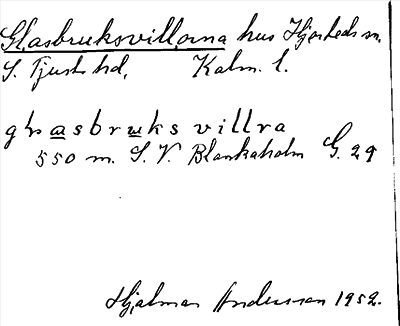 Glasbruksvillorna hus Hjorteds sn.
S. Tjusts hd, Kalm. l.
glasbruks villra
550 m. S. V. Blankaholm G. 29
Hjalmar Andersson 1952.